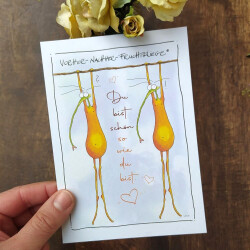 VORHER-NACHHER-FRUCHTZIEGE*
Du
bist
schön
so
wie
du
bist